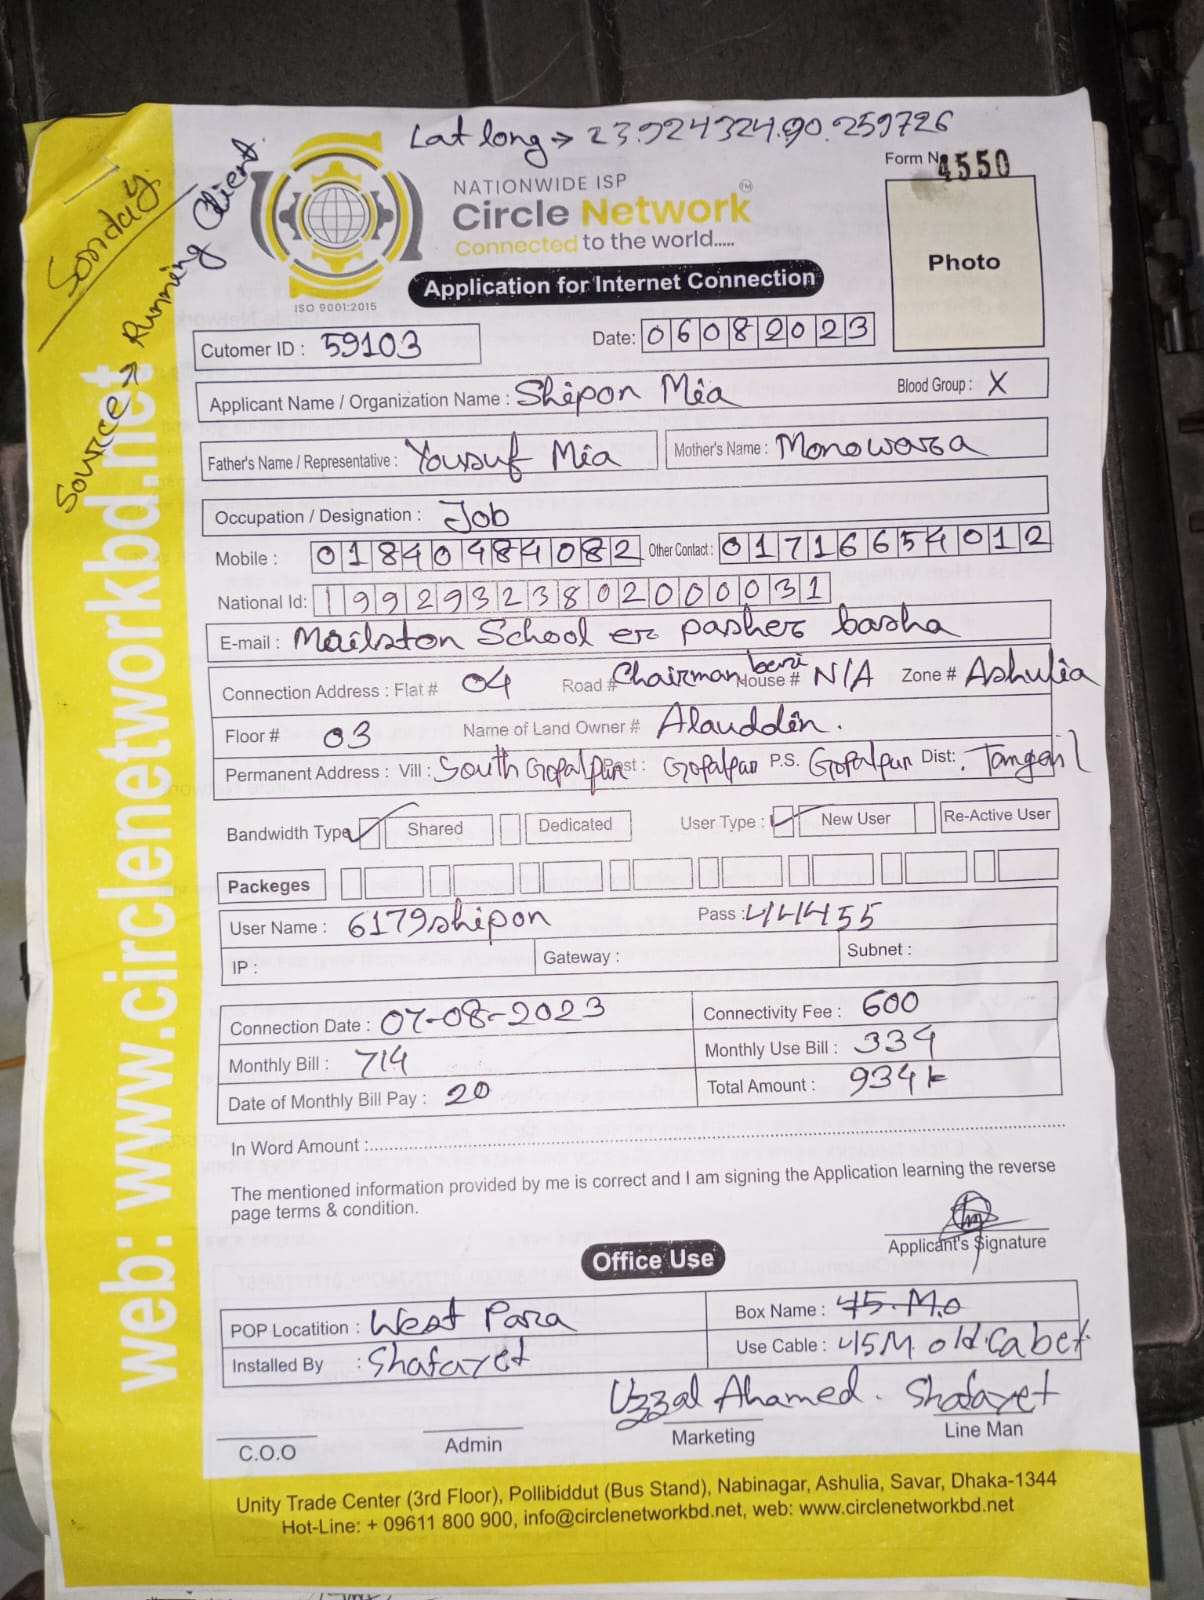 Lat long → 23.924324.90.259726
Sonday.
Source → Running Client.
Form No 4550
NATIONWIDE ISP
Circle Network TM
Connected to the world.....
ISO 9001:2015
Application for Internet Connection
Photo
Cutomer ID : 59103
Date: 06082023
Applicant Name / Organization Name : Shipon Mia Blood Group : X
Father's Name / Representative : Yousuf Mia Mother's Name : Monowara
Occupation / Designation : Job
Mobile : 01840484082 Other Contact : 01716654012
National Id: 19929323802000031
E-mail : Mailston School er pasher basha
Connection Address : Flat # 04 Road # Chairman bari House # N/A Zone # Ashulia
Floor # 03 Name of Land Owner # Alauddin.
Permanent Address : Vill : South Gopalpur Post : Gopalpur P.S. Gopalpur Dist: Tangail
Bandwidth Type ✓ Shared Dedicated User Type : ✓ New User Re-Active User
Packeges
User Name : 6179shipon Pass : 444455
IP : Gateway : Subnet :
Connection Date : 07-08-2023 Connectivity Fee : 600
Monthly Bill : 714 Monthly Use Bill : 334
Date of Monthly Bill Pay : 20 Total Amount : 934
In Word Amount :
The mentioned information provided by me is correct and I am signing the Application learning the reverse
page terms & condition.
Applicant's Signature
Office Use
POP Locatition : West Para Box Name : 45.M.0
Installed By : Shafayet Use Cable : 45M. old cabel.
Uzzal Ahamed. Shafayet
C.O.O Admin Marketing Line Man
Unity Trade Center (3rd Floor), Pollibiddut (Bus Stand), Nabinagar, Ashulia, Savar, Dhaka-1344
Hot-Line: + 09611 800 900, info@circlenetworkbd.net, web: www.circlenetworkbd.net
web: www.circlenetworkbd.net